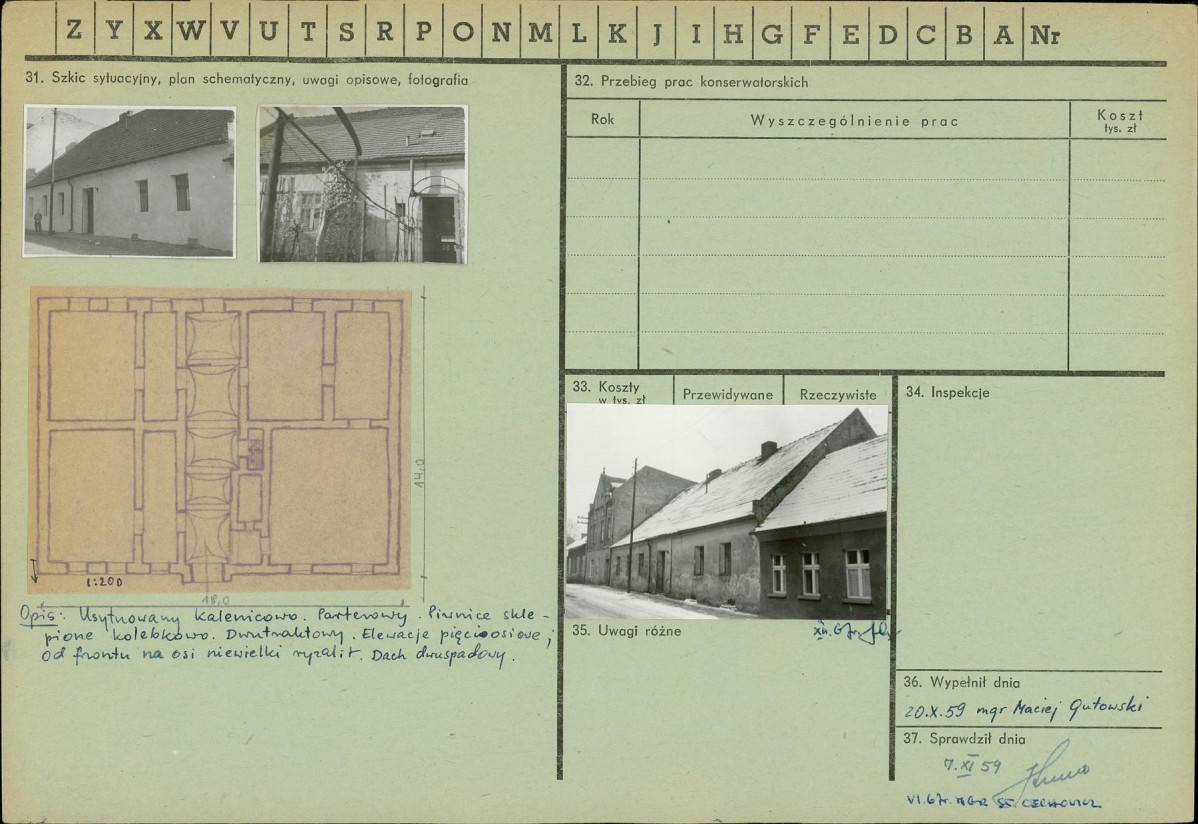 Z Y X W V U T S R P O N M L K J I H G F E D C B A Nr
31. Szkic sytuacyjny, plan schematyczny, uwagi opisowe, fotografia
1:200
14,0
18,0
Opis: Usytuowany kalenicowo. Parterowy. Piwnice skle-
pione kolebkowo. Dwutraktowy. Elewacje pięcioosiowe;
od frontu na osi niewielki ryzalit. Dach dwuspadowy.
32. Przebieg prac konserwatorskich
Rok Wyszczególnienie prac Koszt
tys. zł
33. Koszty
w tys. zł
Przewidywane Rzeczywiste
34. Inspekcje
35. Uwagi różne
36. Wypełnił dnia
20.X.59 mgr Maciej Gutowski
37. Sprawdził dnia
7.XI 59
VI.67r. MGR ST. CECHOWICZ